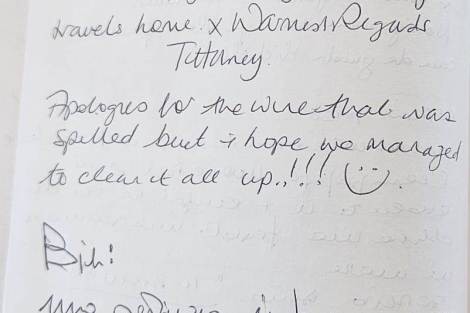 travels home x Warmest Regards
Tiffaney.
Apologies for the wine that was
spilled but i hope we managed
to clean it all up.,!!! :)